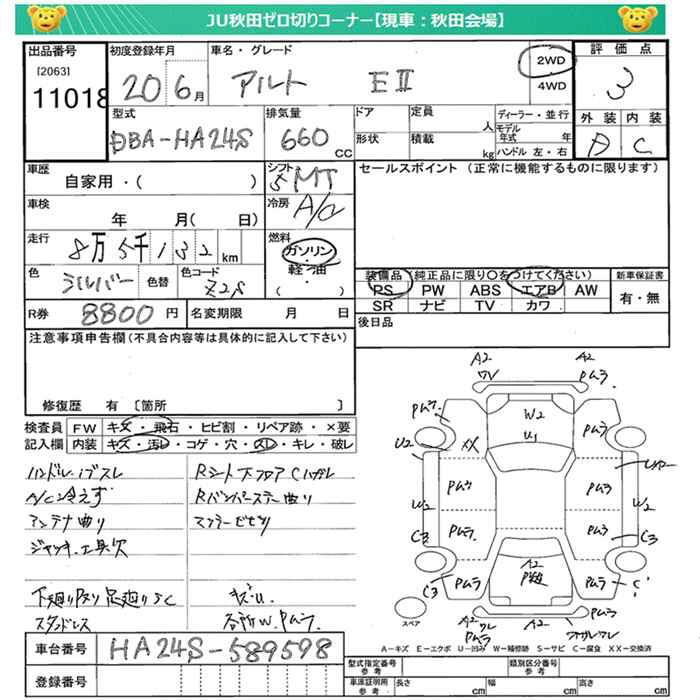 JU秋田ゼロ切りコーナー【現車：秋田会場】
出品番号
[2063]
11018
初度登録年月
20年6月
車名・グレード
アルト EⅡ
2WD
4WD
評価点
3
外装 内装
A C
型式
DBA-HA24S
排気量
660 CC
ドア
形状
定員
人
積載
kg
ディーラー・並行
モデル年式 年
ハンドル 左・右
車歴
自家用・( )
シフト
5 MT
セールスポイント (正常に機能するものに限ります)
車検
年 月( 日)
冷房
A/C
走行
8万5千132km
燃料
ガソリン
軽・油
( )
色
シルバー
色替
色コード
Z2S
装備品(純正品に限り○をつけてください)
PS PW ABS エアB AW
SR ナビ TV カワ
新車保証書
有・無
R券
8800円
名変期限 月 日
後日品
注意事項申告欄(不具合内容等は具体的に記入して下さい)
修復歴 有 [箇所 ]
検査員 FW キズ・飛石・ヒビ割・リペア跡・×要
記入欄 内装 キズ・汚レ・コゲ・穴・スレ・キレ・破レ
ハンドル、iブスレ
A/C冷えず
アンテナ曲り
ジャッキ、工具欠
下廻りサビ足廻りSC
スタッドレス
Rシート下フロアCハガレ
Rバンパーステー曲り
キズU.
各所W.Pムラ.
A2
A2
Pムラ
Pムラ
W2
U1
Pムラ
U2
Pムラ
Pムラ
W2
W2
C3
Pムラ
Pムラ
C3
A2
C3
Pムラ
Pムラ
C1
A2
Pムラ
A2
Pムラ
スペア
車台番号
HA24S-589598
登録番号
A－キズ E－エクボ U－凹み W－補修跡 S－サビ C－腐食 XX－交換済
型式指定番号
参考
類別区分番号
参考
車庫証明用
参考
長さ cm 幅 cm 高さ cm